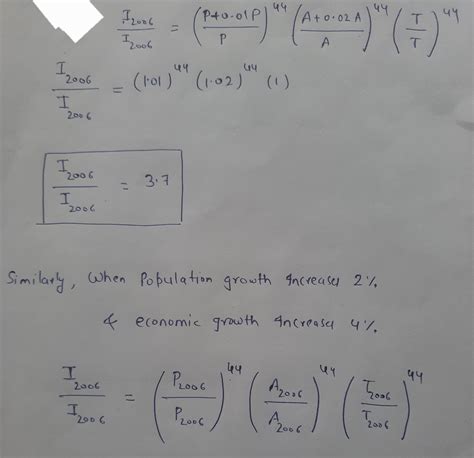 I₂₀₀₆ / I₂₀₀₆ = ((P+0.01P)/P)⁴⁴ ((A+0.02A)/A)⁴⁴ (T/T)⁴⁴
I₂₀₀₆ / I₂₀₀₆ = (1.01)⁴⁴ (1.02)⁴⁴ (1)
I₂₀₀₆ / I₂₀₀₆ = 3.7
Similarly, When Population growth increases 2%
& economic growth increases 4%.
I₂₀₀₆ / I₂₀₀₆ = (P₂₀₀₆ / P₂₀₀₆)⁴⁴ (A₂₀₀₆ / A₂₀₀₆)⁴⁴ (T₂₀₀₆ / T₂₀₀₆)⁴⁴